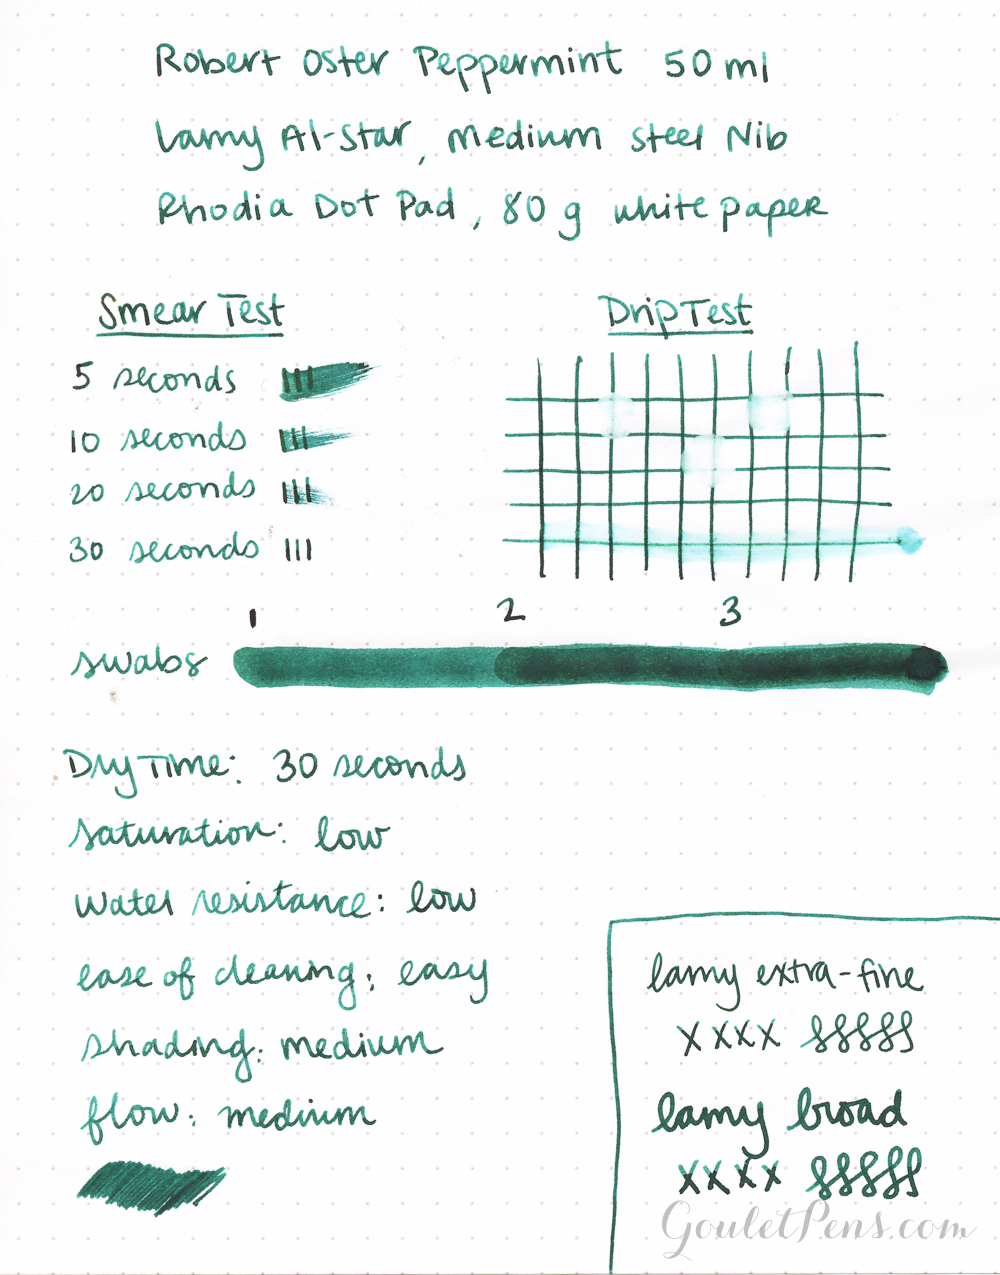 Robert Oster Peppermint 50 ml
Lamy Al-Star, medium steel Nib
Rhodia Dot Pad, 80 g white paper
Smear Test
5 seconds
10 seconds
20 seconds
30 seconds
Drip Test
1 2 3
swabs
Dry Time: 30 seconds
saturation: low
water resistance: low
ease of cleaning: easy
shading: medium
flow: medium
lamy extra-fine
xxxx
lamy broad
xxxx
GouletPens.com